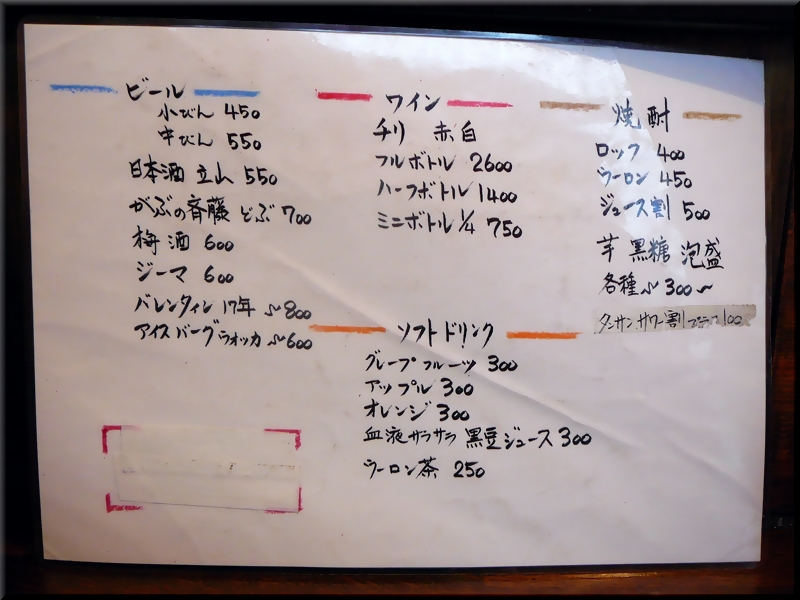 ビール
小びん 450
中びん 550
日本酒 立山 550
がぶの斉藤 どぶ 700
梅酒 600
ジーマ 600
バレンタイン 17年 〜800
アイスバーグウォッカ 〜600
ワイン
チリ 赤白
フルボトル 2600
ハーフボトル 1400
ミニボトル 1/4 750
焼酎
ロック 400
ウーロン 450
ジュース割 500
芋 黒糖 泡盛
各種〜300〜
タンサン サワー割 プラス100
ソフトドリンク
グレープフルーツ 300
アップル 300
オレンジ 300
血液サラサラ 黒豆ジュース 300
ウーロン茶 250